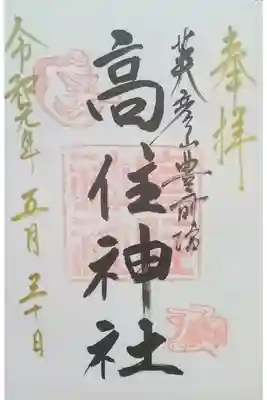 奉拝
英彦山豊前坊
高住神社
令和元年 五月 三十日